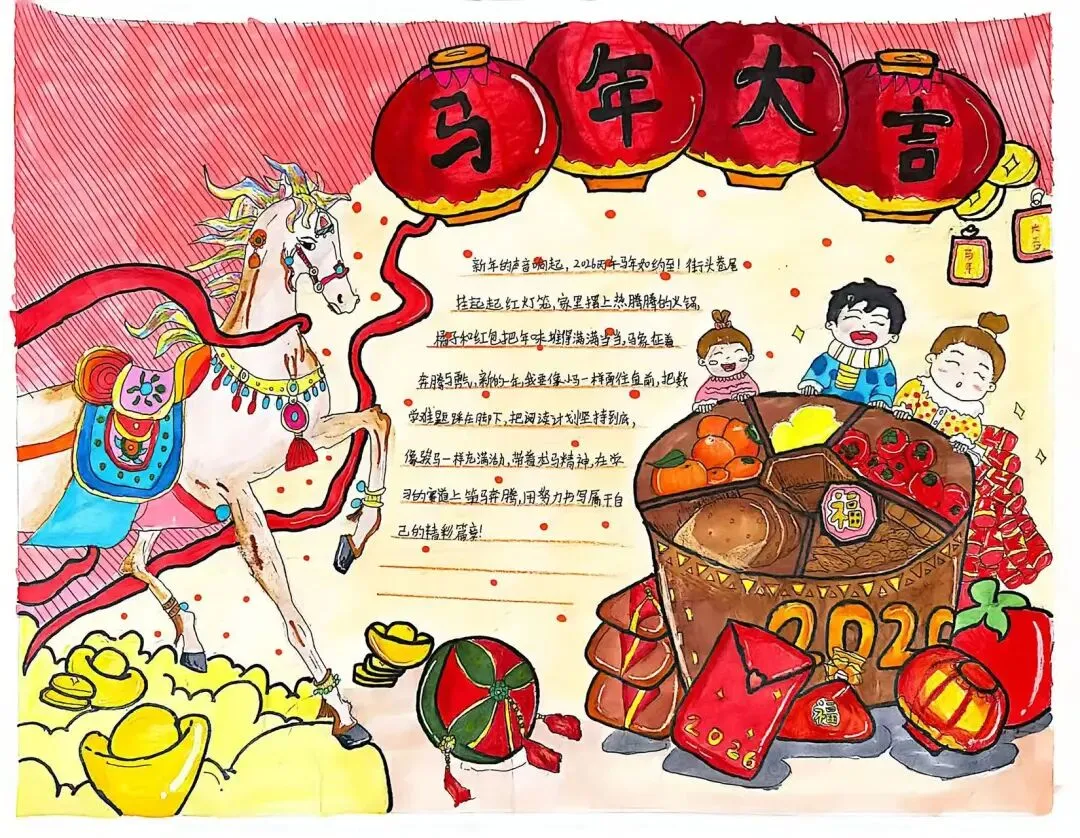 马年大吉
大吉
马年
新年的声音响起，2026丙午马年如约至！街头巷尾
挂起起红灯笼，家里摆上热腾腾的火锅，
橘子和红包把年味堆得满满当当，马象征着
奔腾与熱，新的一年，我要像小马一样勇往直前，把数
学难题踩在脚下，把阅读计划坚持到底，
像骏马一样充满活力，带着龙马精神，在学
习的赛道上策马奔腾，用努力书写属于自
己的精彩篇章！
福
2026
福
2026